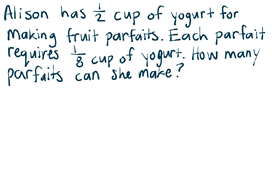 Alison has 1/2 cup of yogurt for
making fruit parfaits. Each parfait
requires 1/8 cup of yogurt. How many
parfaits can she make?